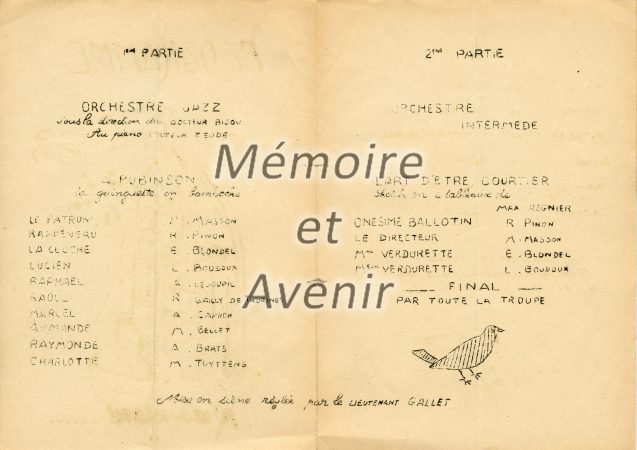 1ère PARTIE
ORCHESTRE JAZZ
sous la direction du DOCTEUR BIDOU
Au piano DOCTEUR
A ROBINSON
la guinguette en
LE PATRON M. MASSON
RAGUENEAU R. PINON
LA CLOCHE E. BLONDEL
LUCIEN L. BOUDOUX
RAPHAËL A. LEJOUPIL
RAOUL R. BAILLY DE
MARCEL A. CAPRON
ARMANDE M. BELLET
RAYMONDE A. BRATS
CHARLOTTE M. TUYTTENS
2ème PARTIE
ORCHESTRE
INTERMEDE
L'ART D'ETRE COURTIER
sketch en tableaux de
MAX REGNIER
ONESIME BALLOTIN R. PINON
LE DIRECTEUR M. MASSON
Mr VERDURETTE E. BLONDEL
Mme VERDURETTE L. BOUDOUX
FINAL
PAR TOUTE LA TROUPE
Mise en scène réglée par le LIEUTENANT GALLET
Mémoire
et
Avenir